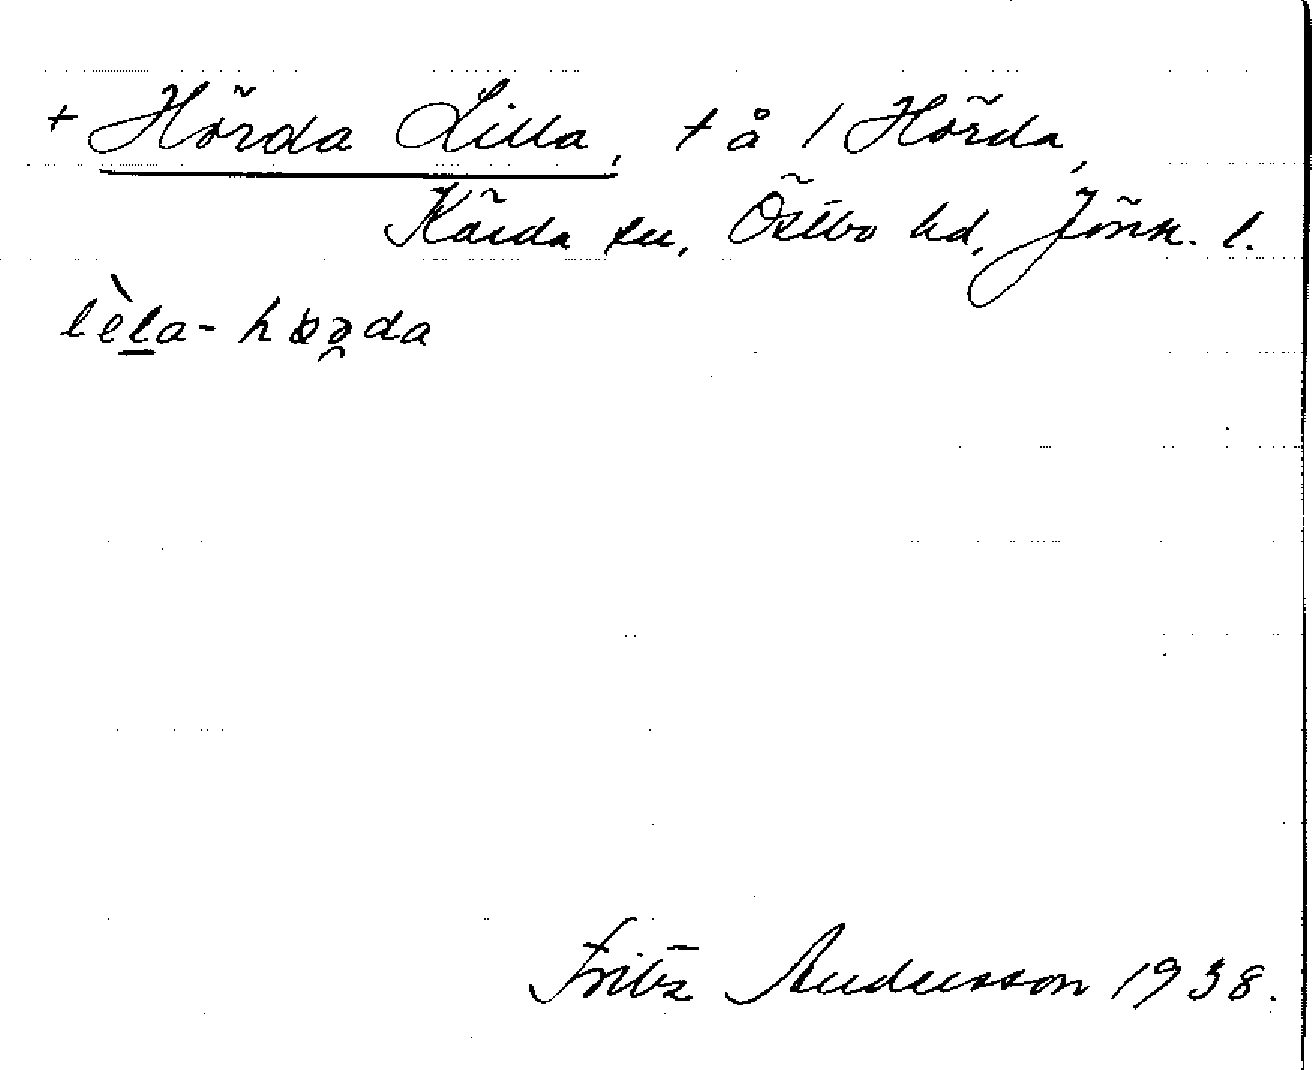 + Hörda Lilla, t å 1 Hörda,
Kärda sn, Östbo hd, Jönk. l.
lèla-
Fritz Andersson 1938.